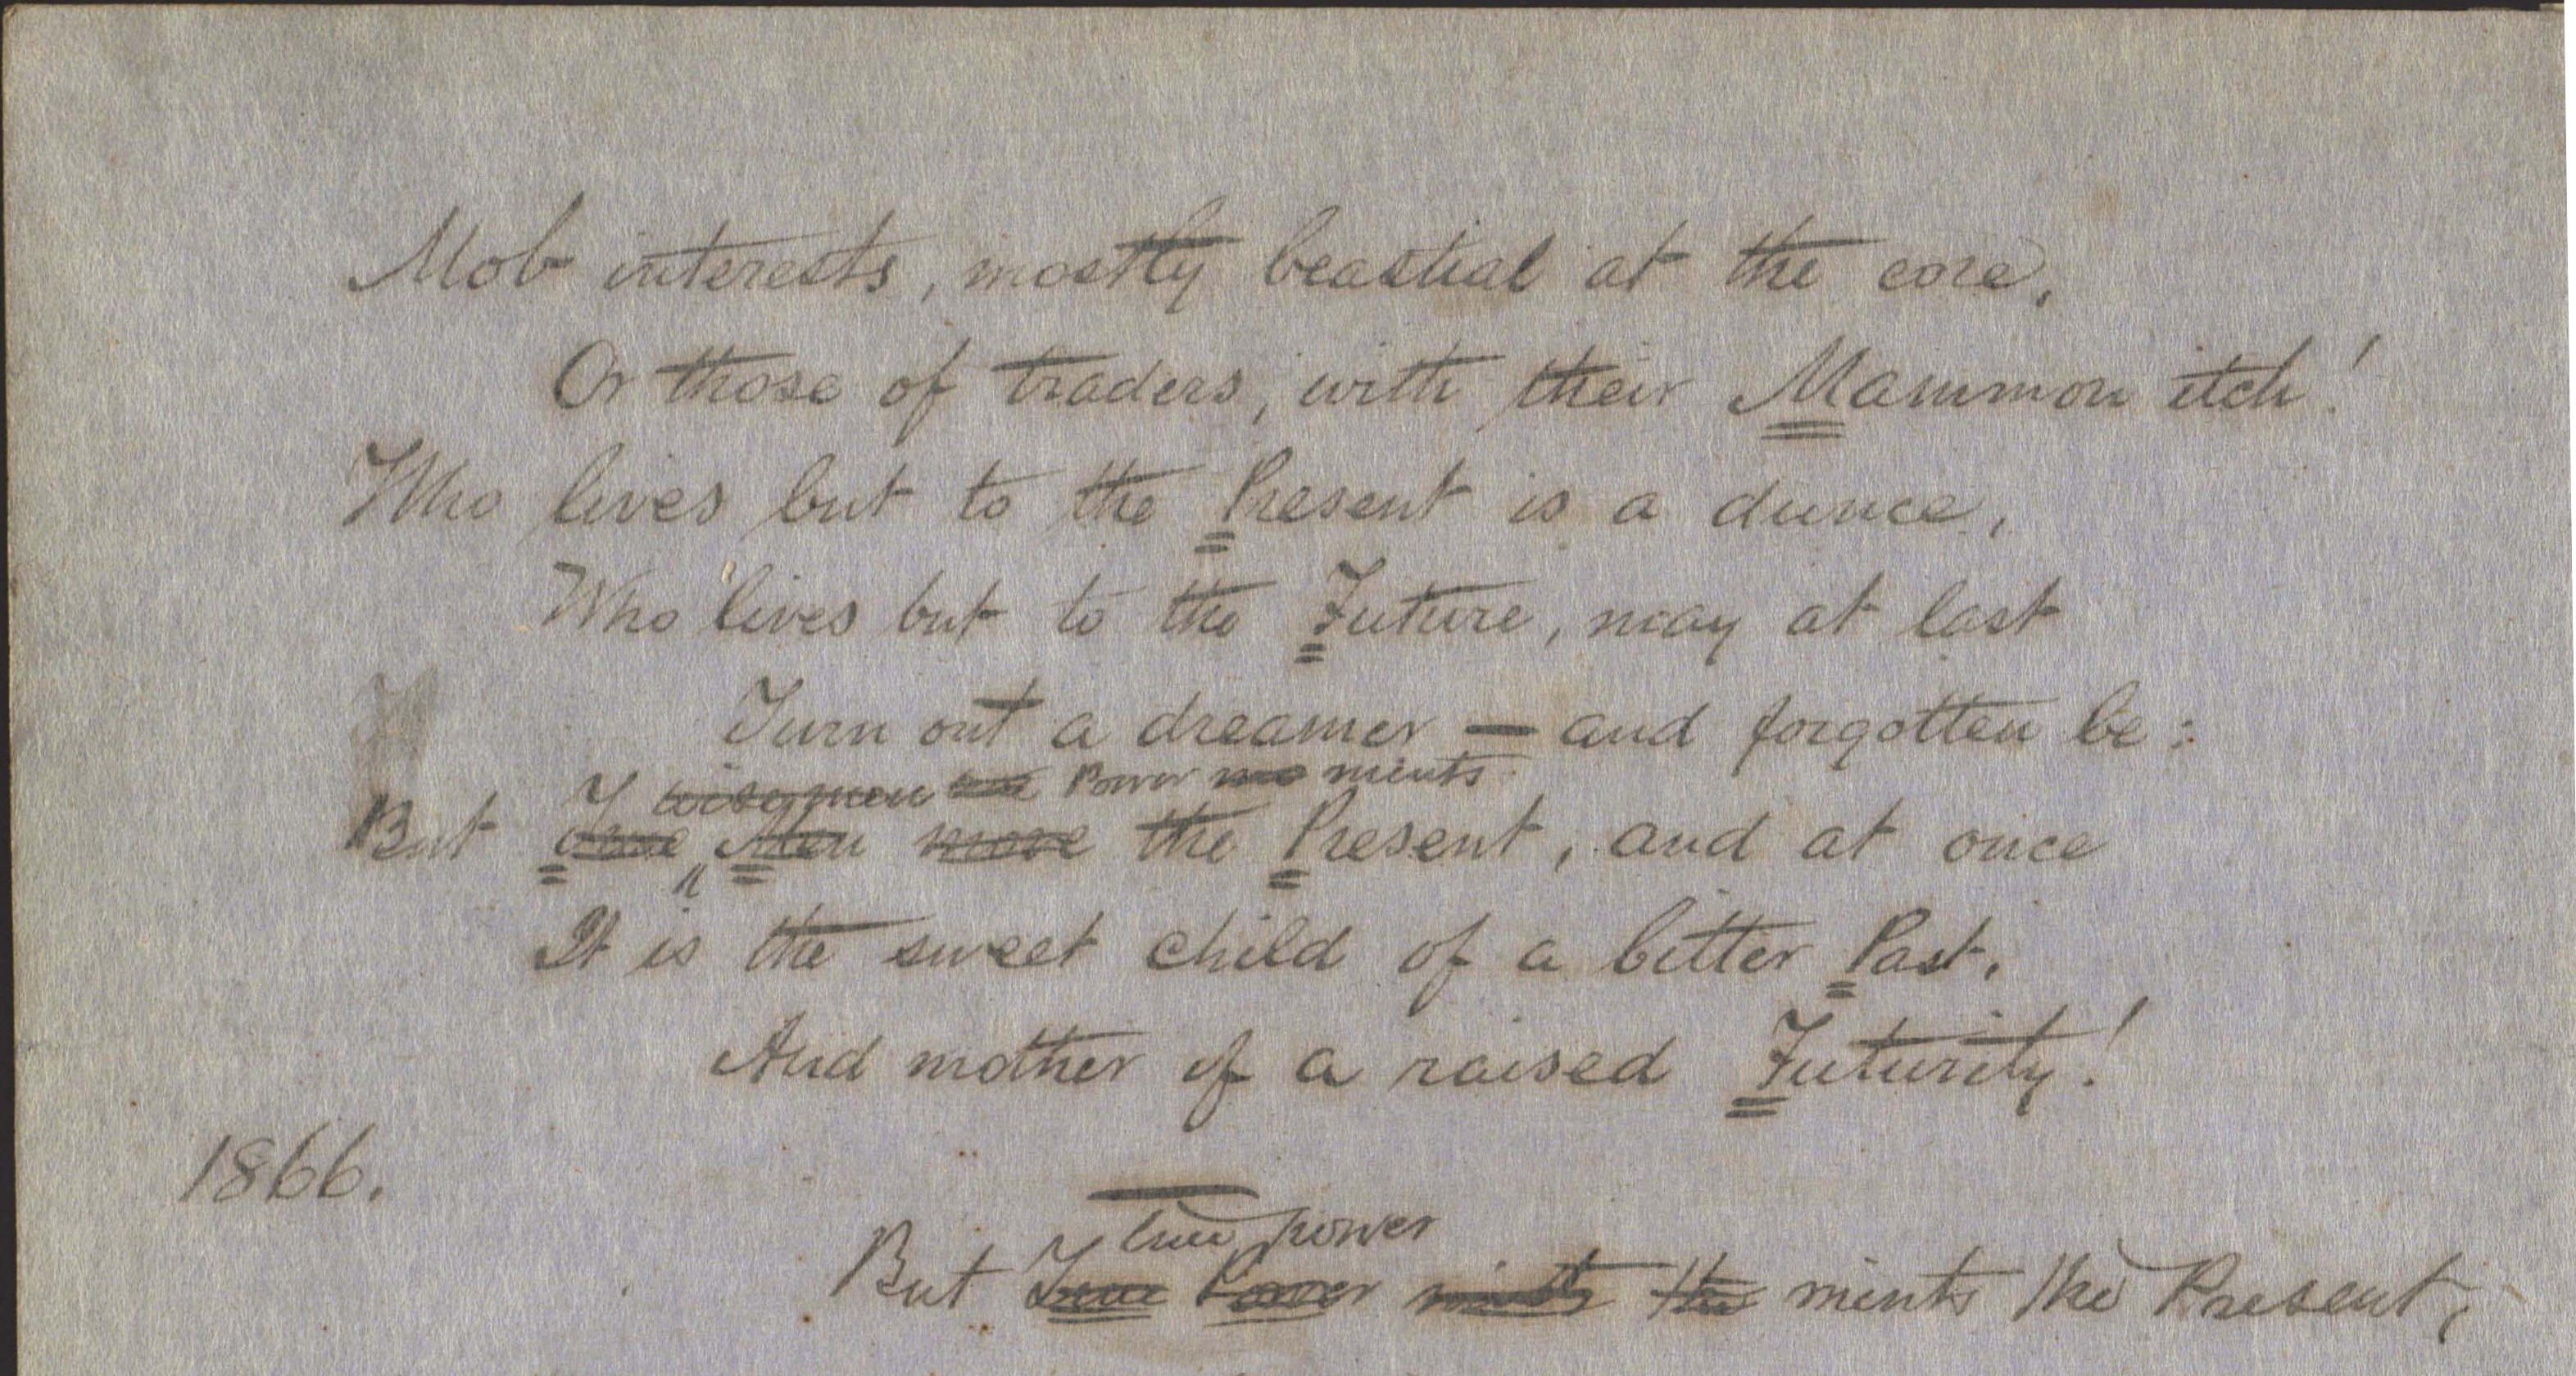 Mob interests, mostly beastial at the core,
Or those of traders, with their Mammon itch!
Who lives but to the Present is a dunce,
Who lives but to the Future, may at last
Turn out a dreamer — and forgotten be:
wise men Power mints
But Men move the Present, and at once
It is the sweet child of a bitter Past,
And mother of a raised Futurity!
1866.
true power
But True Power mints the mints the Present,